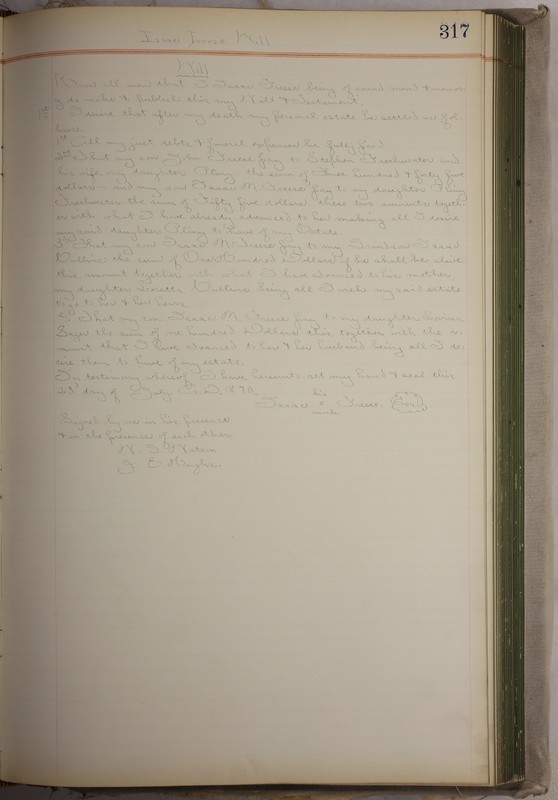 317
Isaac Treese Will
Will
Know all men that I Isaac Treese being of sound mind & memory do make & publish this my Will & Testament.
1st I desire that after my death my personal estate be settled as follows.
1st All my just debts & funeral expenses be fully paid
2nd That my son John Treese pay to Stephen Freshwater and
his wife my daughter the sum of Three hundred & forty five
dollars and my son Isaac M. Treese pay to my daughter
Freshwater the sum of Fifty five dollars these two amounts togeth-
er with what I have already advanced to her making all I desire
my said daughter to have of my Estate.
3rd That my son Isaac M. Treese pay to my Grandson Isaac
Mullins the sum of One Hundred Dollars if he shall be alive
this amount together with what I have advanced to his mother
my daughter Mullins being all I wish my said estate
to go to her & her heirs
That my son Isaac M. Treese pay to my daughter
the sum of one hundred Dollars this together with the a-
mount that I have advanced to her & her husband being all I de-
sire them to have of my estate.
In testimony whereof I have hereunto set my hand & seal this
23d day of July A.D. 1870.
Isaac his x mark Treese Seal
Signed by me in his presence
& in the presence of each other